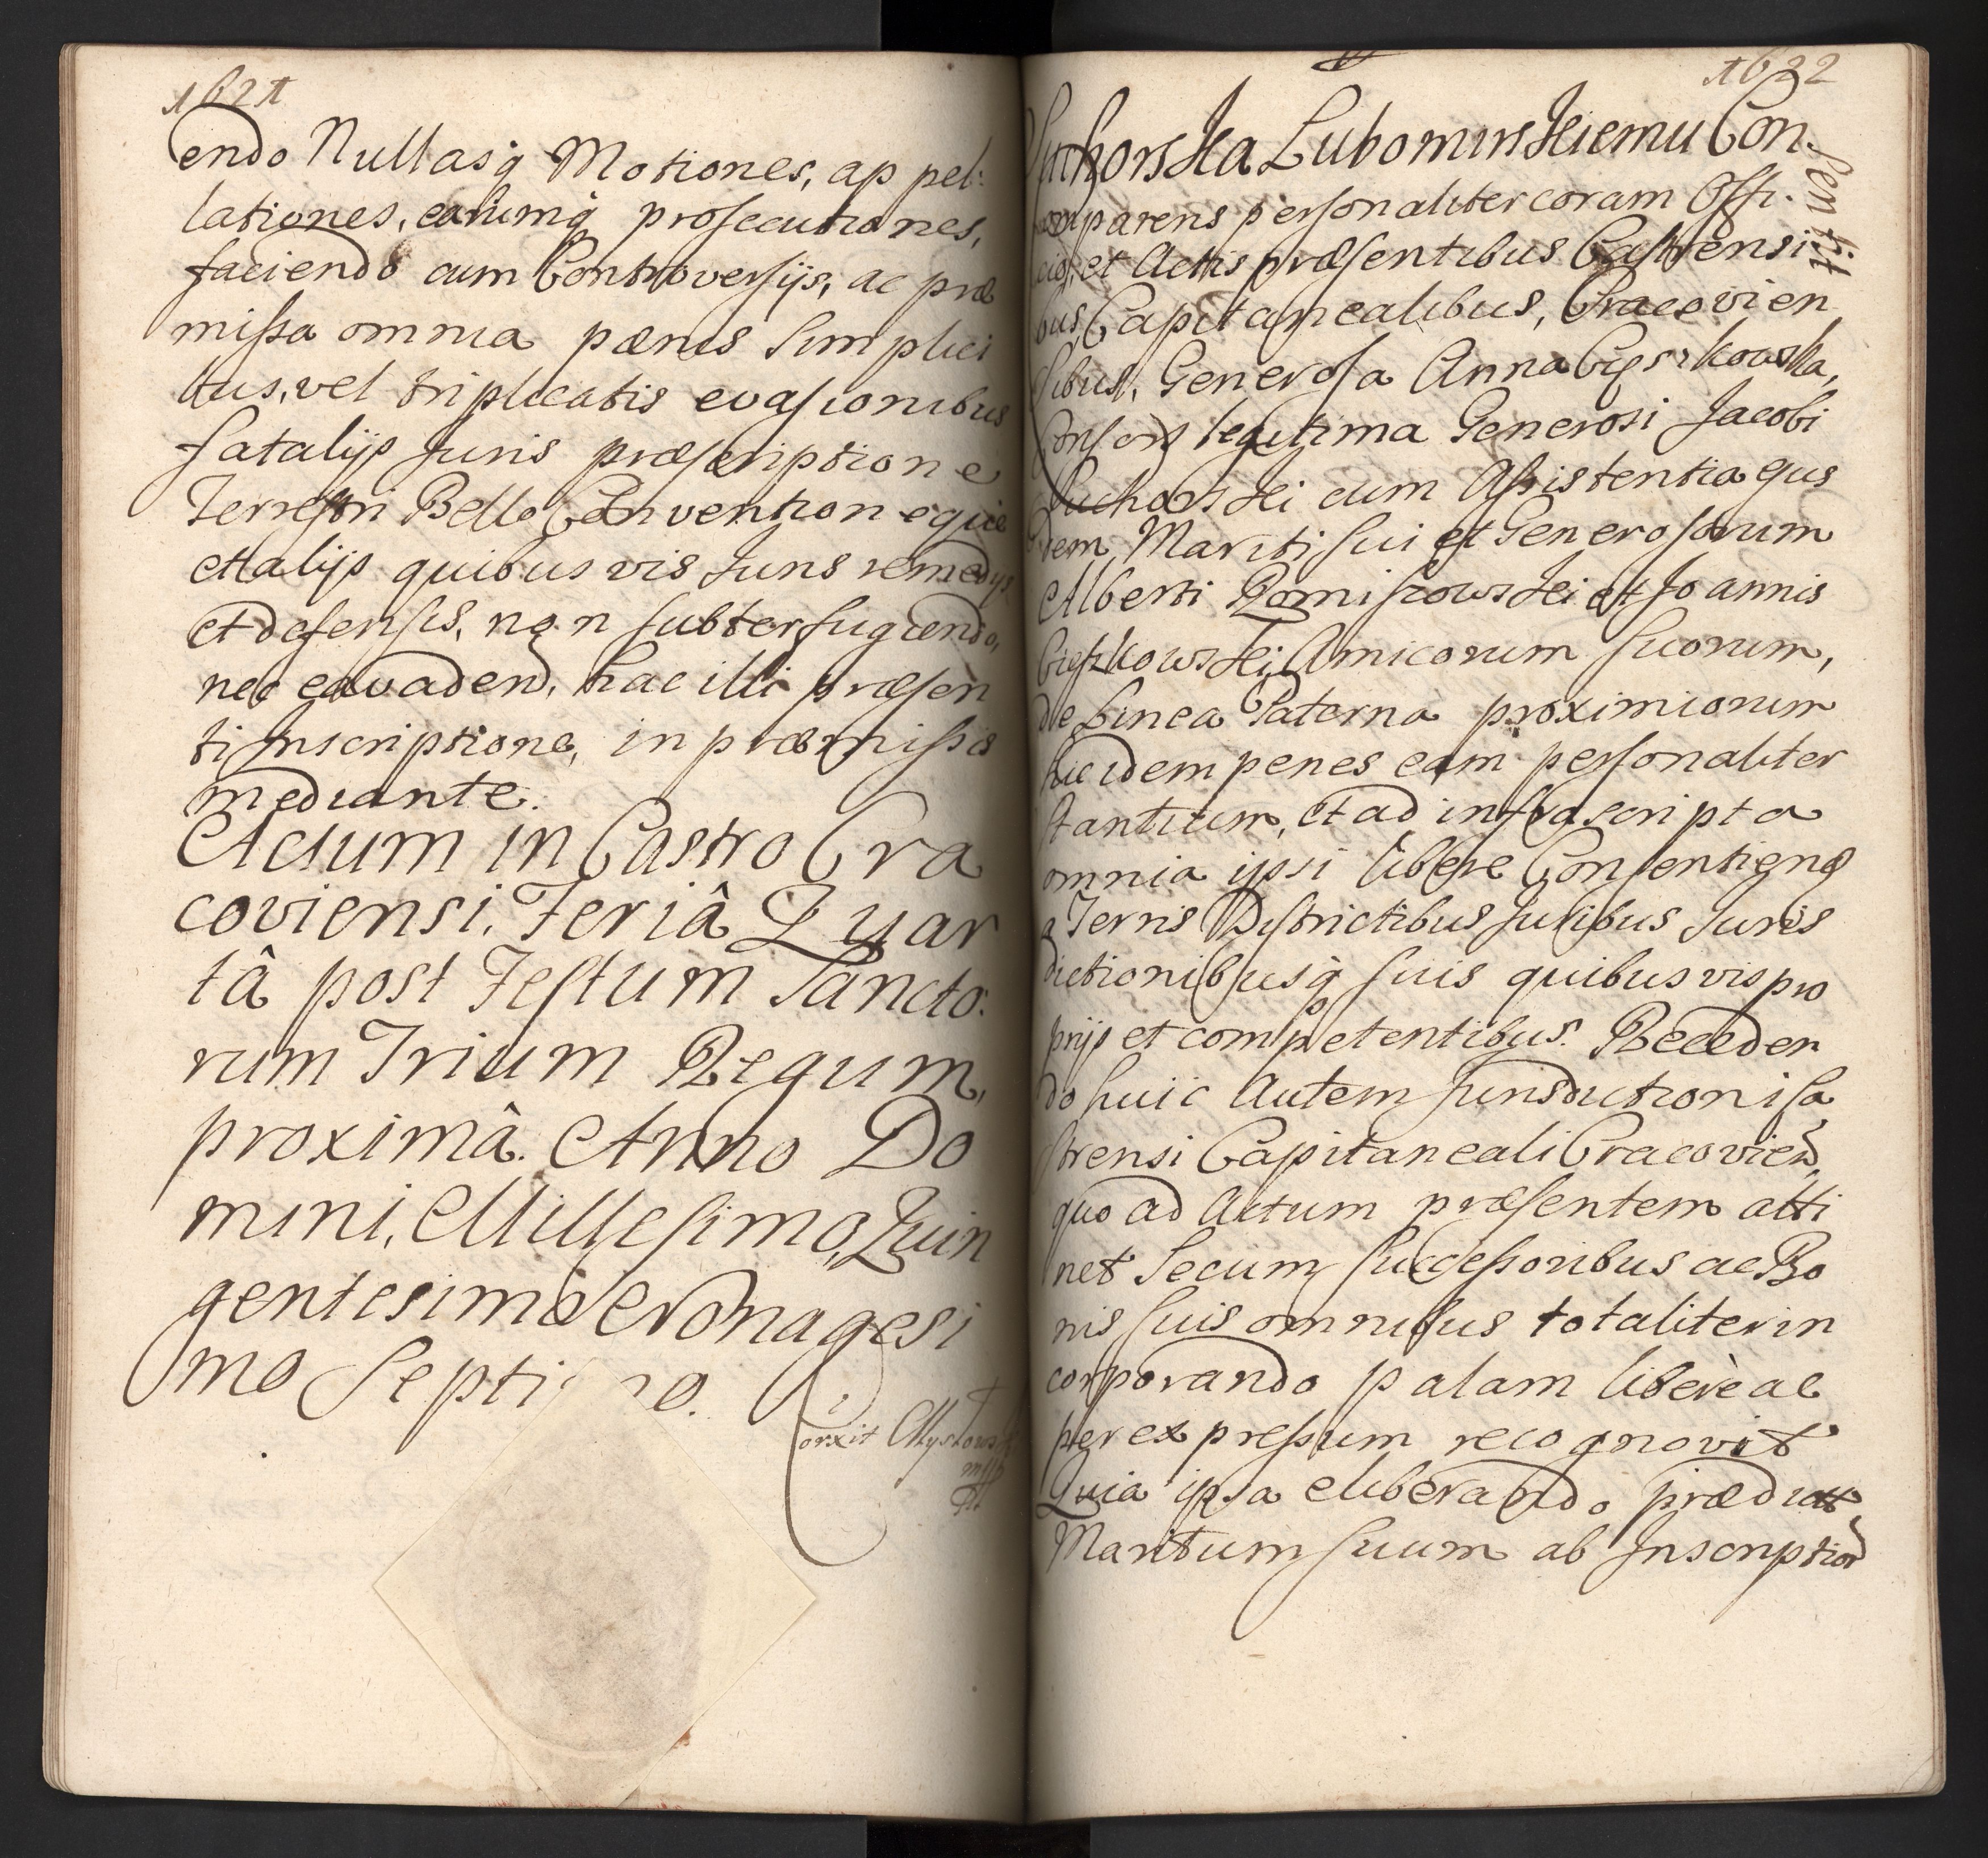 1621
endo Nullasq̃ Motiones, appel:
lationes, earumq̃ prosecutiones,
faciendo cum Controversijs, ac præ
missa omnia pænis Simplici
bus, vel triplicatis evasionibus
fatalijs Juris præscriptione
Terrestri Bello Conventioneque
et alijs quibusvis Juris remedijs
et defensis, non subterfugiendo,
nec evadend, hac illi præsen
ti Inscriptione, in præmissis
mediante.
Actum in Castro Cra
coviensi, Feriâ Quar
tâ post Festum Sancto:
rum Trium Regum,
proximâ. Anno Do
mini, Millesimo, Quin
gentesimo Nonagesi
mo Septimo.
1622
Suchorska Lubomirskiemu Con.
sentit
Comparens personaliter coram Offi.
cio, et Actis præsentibus Castrensi
bus, Capitanealibus, Cracovien
sibus, Generosa Anna Cieszkowska,
Consors legitima Generosi Jacobi
Suchorski cum Assistentia ejus
dem Mariti sui et Generosorum
Alberti Romiszowski et Joannis
Cieszkowski Amicorum suorum,
de Linea Paterna proximiorum
hic idem penes eam personaliter
stantium, et ad infrascripta
omnia ipsi libere Consentieng
a Terris Districtibus Juribus Juris
dictionibusq̃ suis quibusvis pro
prijs et competentibus. Receden
do huic Autem Jurisdictioni Ca
strensi Capitaneali Cracovien,
quo ad Actum præsentem atti
net Secum Successoribus ac Bo
nis suis omnibus totaliter in
corporando palam liberè ac
per expressum recognovit
Quia ipsa eliberando prædict
Maritum suum ab Inscription